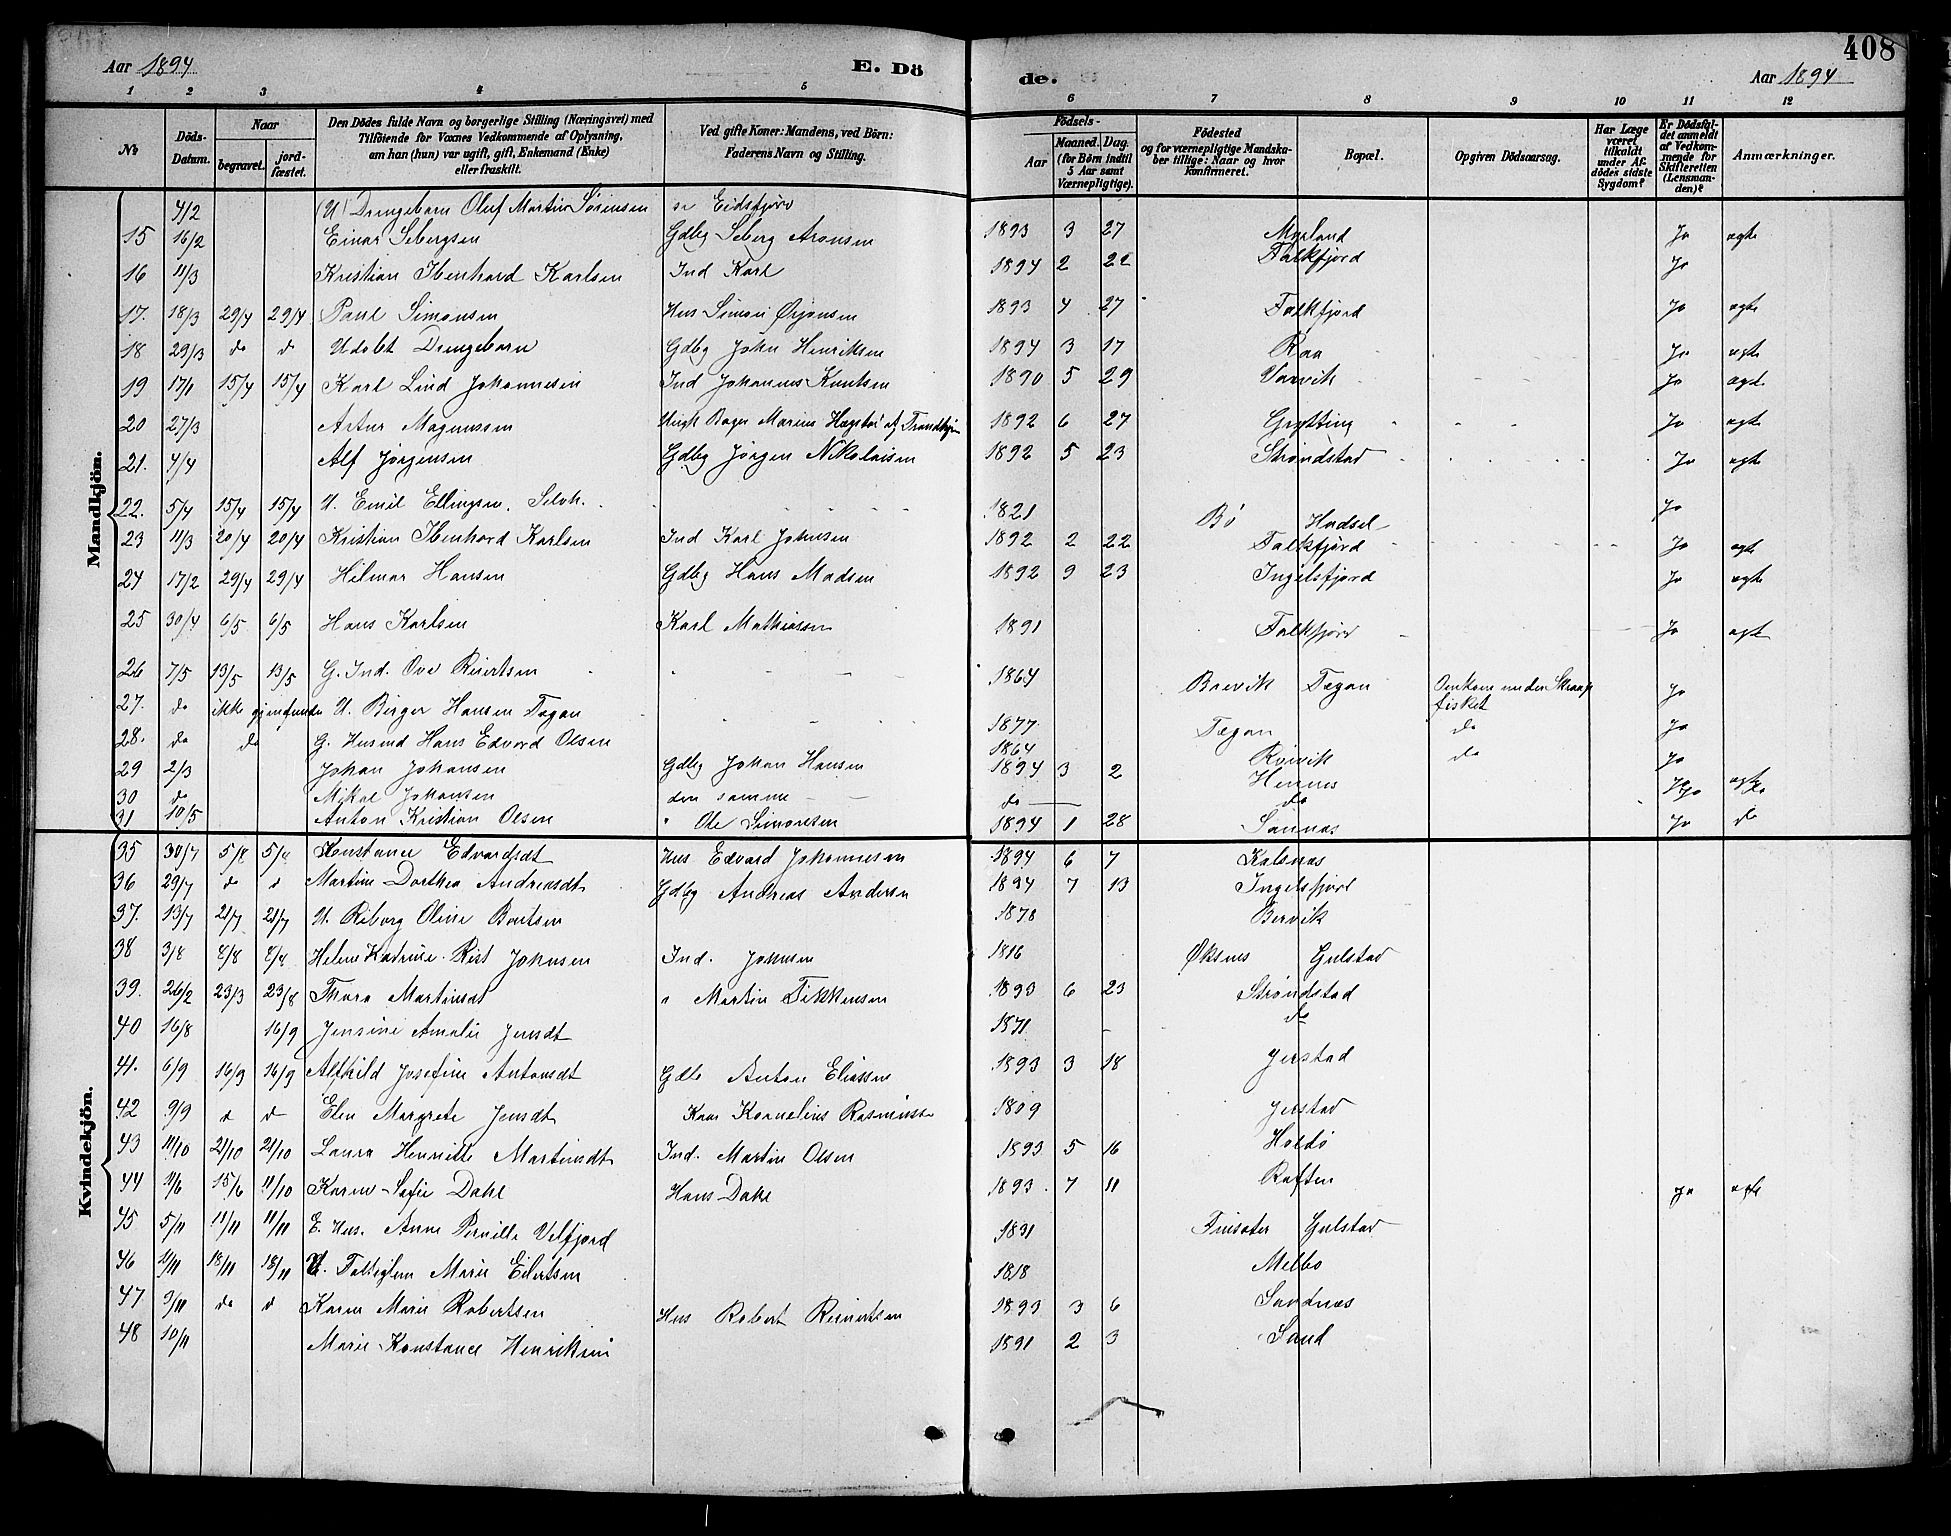 Aar 1894 E. Dö de. Aar 1894 408
1 2 3 4 5 6 7 8 9 10 11 12
No Döds-Datum. Naar begravet. jordfæstet. Den Dödes fulde Navn og borgerlige Stilling (Næringsvei) med Tilföiende for Voxnes Vedkommende af Oplysning, om han (hun) var ugift, gift, Enkemand (Enke) eller fraskilt. Ved gifte Koner: Mandens, ved Börn: Faderens Navn og Stilling. Födsels- Aar Maaned. Dag. (for Börn indtil 5 Aar samt Værnepligtige). Födested og for værnepligtige Mandskaber tillige: Naar og hvor konfirmeret. Bopæl. Opgiven Dödsaarsag. Har Læge været tilkaldt under Afdödes sidste Sygdom? Er Dödsfaldet anmeldt af Vedkommende for Skifteretten (Lensmanden)? Anmærkninger.
Mandkjön.
4/2 (U) Drengebarn Oluf Martin Sørensen se Eidsfjord
15 16/2 Einar Sebergsen Gdbg Seberg Aronsen 1893 3 27 Myrland Jo egte
16 11/3 Kristian Ibenhard Karlsen Ind Karl 1894 2 22 Falkfjord Jo
17. 18/3 29/4 29/4 Paul Simonsen Hus Simon Ørjansen 1893 4 27 Falkfjord Jo egte
18 29/3 do d Udøbt Drengebarn Gdbg John Henriksen 1894 3 17 Raa Jo egte
19 17/1 15/4 15/4 Karl Lind Johannesen Ind Johannes Knutsen 1890 5 29 Varvik Jo egte
20 27/3 Artur Magnussen Ungk Bager Marius af Trondhjem 1892 6 27 Grytting Jo egte
21. 4/4 Alf Jørgensen Gdbg Jørgen Nikolaisen 1892 5 23 Strøndstad Jo egte
22. 5/4 15/4 15/4 U. Emil Ellingsen, Selvh. 1821 Bø Hadsel Jo
23 11/3 20/4 20/4 Kristian Ibenhard Karlsen Ind Karl Johnsen 1892 2 22 Falkfjord Jo egte
24 17/2 29/4 29/4 Hilmar Hansen Gdbg Hans Madsen 1892 9 23 Ingelsfjord Jo egte
25 30/4 6/5 6/5 Hans Karlsen Karl Mathiassen 1891 Falkfjord Jo egte
26 7/5 13/5 13/5 G. Ind. Ove Rinertsen 1864 Brevik Tegan Omkom under Skreifisket Jo
27. do ikke gjenfunde U. Birger Hansen Tegan 1877 Tegan do Jo
28. do do G. Husmd Hans Edvard Olsen 1864 Røivik do Jo
29 2/3 Johan Johansen Gdbg Johan Hansen 1894 3 2 Hennes Jo egte
30 do Mikal Johansen den samme do do Jo
31 10/5 Anton Kristian Olsen " Ole Simonsen 1894 1 28 Sannæs Jo do
Kvindekjön.
35 30/7 5/8 5/8 Konstance Edvardsdt Hus Edvard Johannesen 1894 6 7 Kalsnæs
36 29/7 d d Martine Dorthea Andreasdt Gdbg Andreas Andersen 1894 7 13 Ingelsfjord
37. 13/7 21/7 21/7 U. Riborg Oline Bentsen 1878 Bervik
38 3/8 8/8 8/8 Helene Katrine Rist Johnsen Ind. Johnsen 1816 Øksnes Gulstad
39. 26/2 23/3 23/8 Thora Martinsdt " Martin Fikkensen 1893 6 23 Strøndstad
40 16/8 16/9 Jensine Amalie Jensdt 1871 do
41. 6/9 16/9 16/9 Alfhild Josefine Antonsdt Gdb Anton Eliassen 1893 3 18 Jerstad
42 9/9 d d Elen Margrete Jensdt Kaar Kornelius Rasmussen 1809 Jerstad
43 11/10 21/10 21/10 Laura Henriette Martinsdt Ind. Martin Olsen 1893 5 16 Holdø
44 1/6 15/6 11/10 Karen Sofie Dahl Hans Dahl 1893 7 11 Raften Jo egte
45. 5/11 11/11 11/11 E. Hus. Anne Pernille Velfjord 1831 Finsæter Gulstad
46 11/11 18/11 18/11 U. Fattiglem Marie Eilertsen 1818 Melbo
47. 9/11 do d Karen Marie Robertsen Hus Robert Reinertsen 1893 3 6 Sandnæs
48 10/11 Marie Konstance Henriksen 1891 2 3 Sand